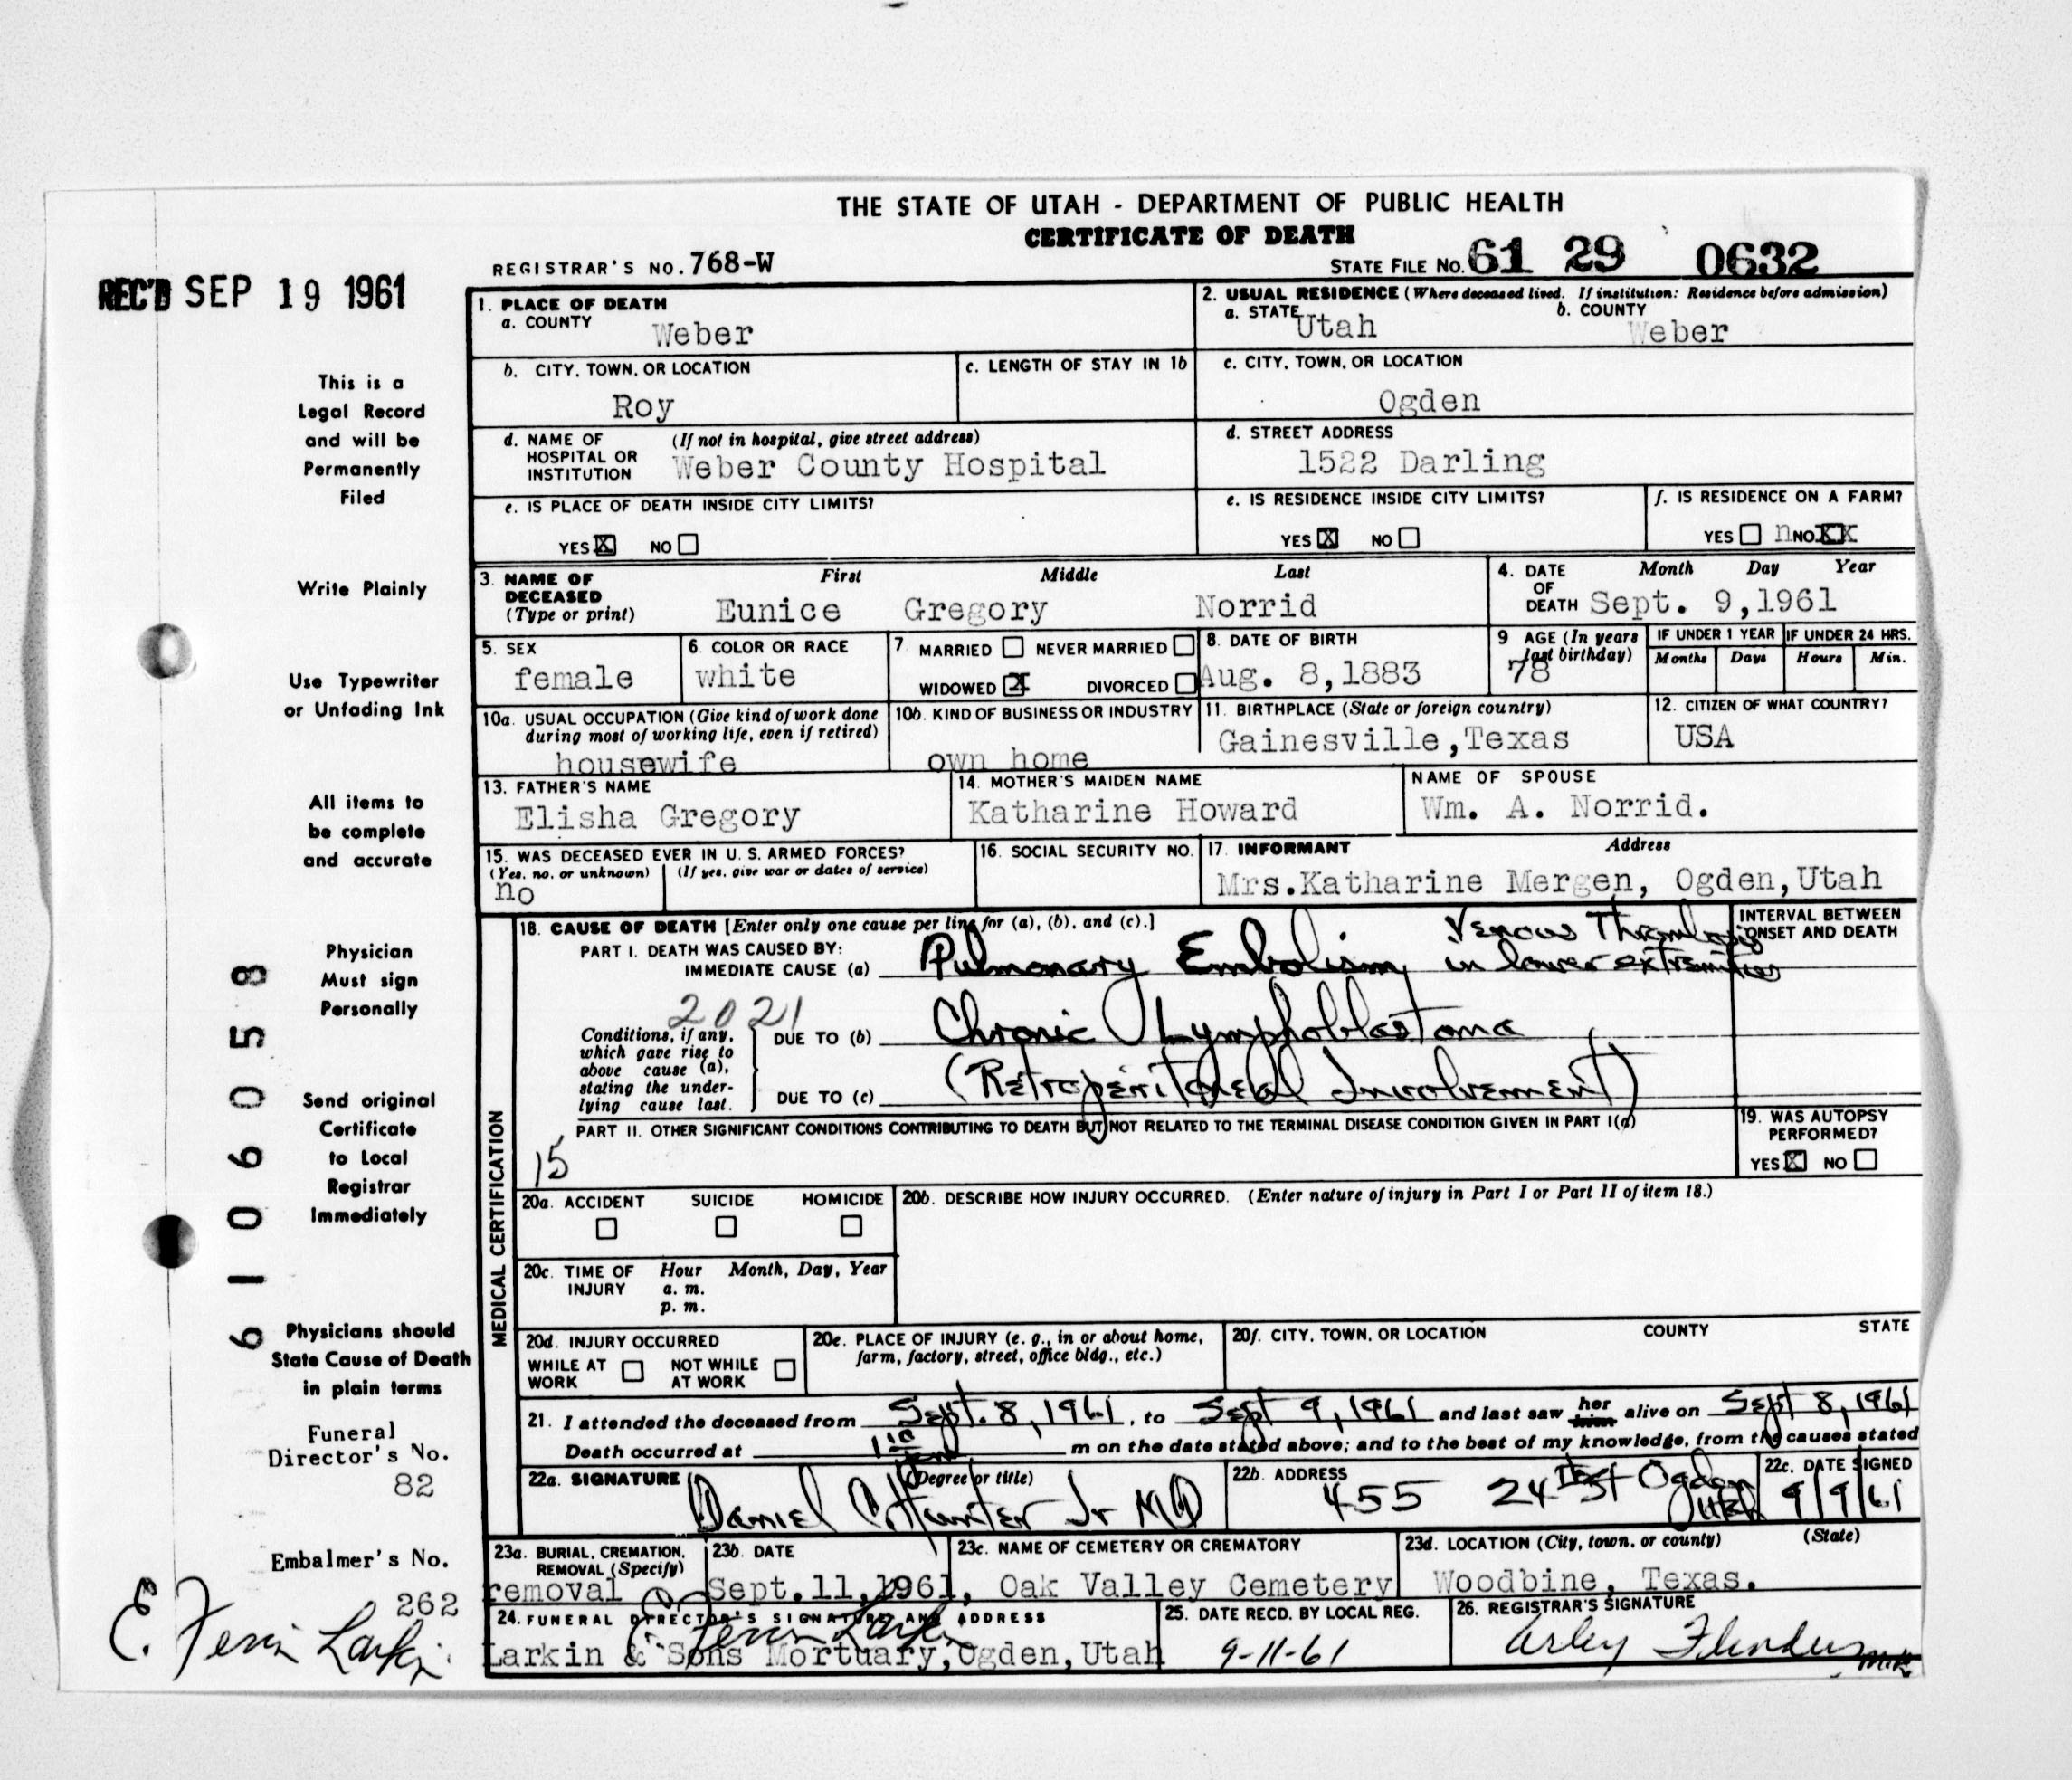 THE STATE OF UTAH - DEPARTMENT OF PUBLIC HEALTH
CERTIFICATE OF DEATH
REGISTRAR'S NO. 768-W STATE FILE NO. 61 29 0632
REC'D SEP 19 1961
This is a
Legal Record
and will be
Permanently
Filed
Write Plainly
Use Typewriter
or Unfading Ink
All items to
be complete
and accurate
Physician
Must sign
Personally
Send original
Certificate
to Local
Registrar
Immediately
Physicians should
State Cause of Death
in plain terms
Funeral
Director's No.
82
Embalmer's No.
262
E. Ferrin Larkin
6106058
1. PLACE OF DEATH
a. COUNTY Weber
2. USUAL RESIDENCE (Where deceased lived. If institution: Residence before admission)
a. STATE Utah b. COUNTY Weber
b. CITY, TOWN, OR LOCATION Roy
c. LENGTH OF STAY IN 1b
c. CITY, TOWN, OR LOCATION Ogden
d. NAME OF HOSPITAL OR INSTITUTION (If not in hospital, give street address) Weber County Hospital
d. STREET ADDRESS 1522 Darling
e. IS PLACE OF DEATH INSIDE CITY LIMITS?
YES X NO
e. IS RESIDENCE INSIDE CITY LIMITS?
YES X NO
f. IS RESIDENCE ON A FARM?
YES n NO XX
3. NAME OF DECEASED (Type or print) First Middle Last
Eunice Gregory Norrid
4. DATE OF DEATH Month Day Year
Sept. 9,1961
5. SEX female
6. COLOR OR RACE white
7. MARRIED NEVER MARRIED
WIDOWED X DIVORCED
8. DATE OF BIRTH Aug. 8,1883
9 AGE (In years last birthday) 78
IF UNDER 1 YEAR Months Days
IF UNDER 24 HRS. Hours Min.
10a. USUAL OCCUPATION (Give kind of work done during most of working life, even if retired) housewife
10b. KIND OF BUSINESS OR INDUSTRY own home
11. BIRTHPLACE (State or foreign country) Gainesville,Texas
12. CITIZEN OF WHAT COUNTRY? USA
13. FATHER'S NAME Elisha Gregory
14. MOTHER'S MAIDEN NAME Katharine Howard
NAME OF SPOUSE Wm. A. Norrid.
15. WAS DECEASED EVER IN U. S. ARMED FORCES?
(Yes, no, or unknown) (If yes, give war or dates of service)
no
16. SOCIAL SECURITY NO.
17. INFORMANT Address
Mrs.Katharine Mergen, Ogden,Utah
MEDICAL CERTIFICATION
18. CAUSE OF DEATH [Enter only one cause per line for (a), (b), and (c).]
INTERVAL BETWEEN ONSET AND DEATH
PART I. DEATH WAS CAUSED BY:
IMMEDIATE CAUSE (a) Pulmonary Embolism, Venous Thrombosis in lower extremities
2021
Conditions, if any, which gave rise to above cause (a), stating the underlying cause last.
DUE TO (b) Chronic Lymphoblastoma
DUE TO (c) (Retroperitoneal Involvement)
PART II. OTHER SIGNIFICANT CONDITIONS CONTRIBUTING TO DEATH BUT NOT RELATED TO THE TERMINAL DISEASE CONDITION GIVEN IN PART I(a)
15
19. WAS AUTOPSY PERFORMED?
YES X NO
20a. ACCIDENT SUICIDE HOMICIDE
20b. DESCRIBE HOW INJURY OCCURRED. (Enter nature of injury in Part I or Part II of item 18.)
20c. TIME OF INJURY Hour Month, Day, Year
a. m.
p. m.
20d. INJURY OCCURRED
WHILE AT WORK NOT WHILE AT WORK
20e. PLACE OF INJURY (e. g., in or about home, farm, factory, street, office bldg., etc.)
20f. CITY, TOWN, OR LOCATION COUNTY STATE
21. I attended the deceased from Sept. 8, 1961, to Sept 9, 1961 and last saw her him alive on Sept 8, 1961
Death occurred at m on the date stated above; and to the best of my knowledge, from the causes stated
22a. SIGNATURE (Degree or title)
Daniel C. Hunter Jr MD
22b. ADDRESS 455 24 St Ogden Utah
22c. DATE SIGNED 9/9/61
23a. BURIAL, CREMATION, REMOVAL (Specify) removal
23b. DATE Sept.11,1961,
23c. NAME OF CEMETERY OR CREMATORY Oak Valley Cemetery
23d. LOCATION (City, town, or county) (State)
Woodbine, Texas.
24. FUNERAL DIRECTOR'S SIGNATURE AND ADDRESS
E. Ferrin Larkin
Larkin & Sons Mortuary,Ogden,Utah
25. DATE RECD. BY LOCAL REG. 9-11-61
26. REGISTRAR'S SIGNATURE
Arley Flinders